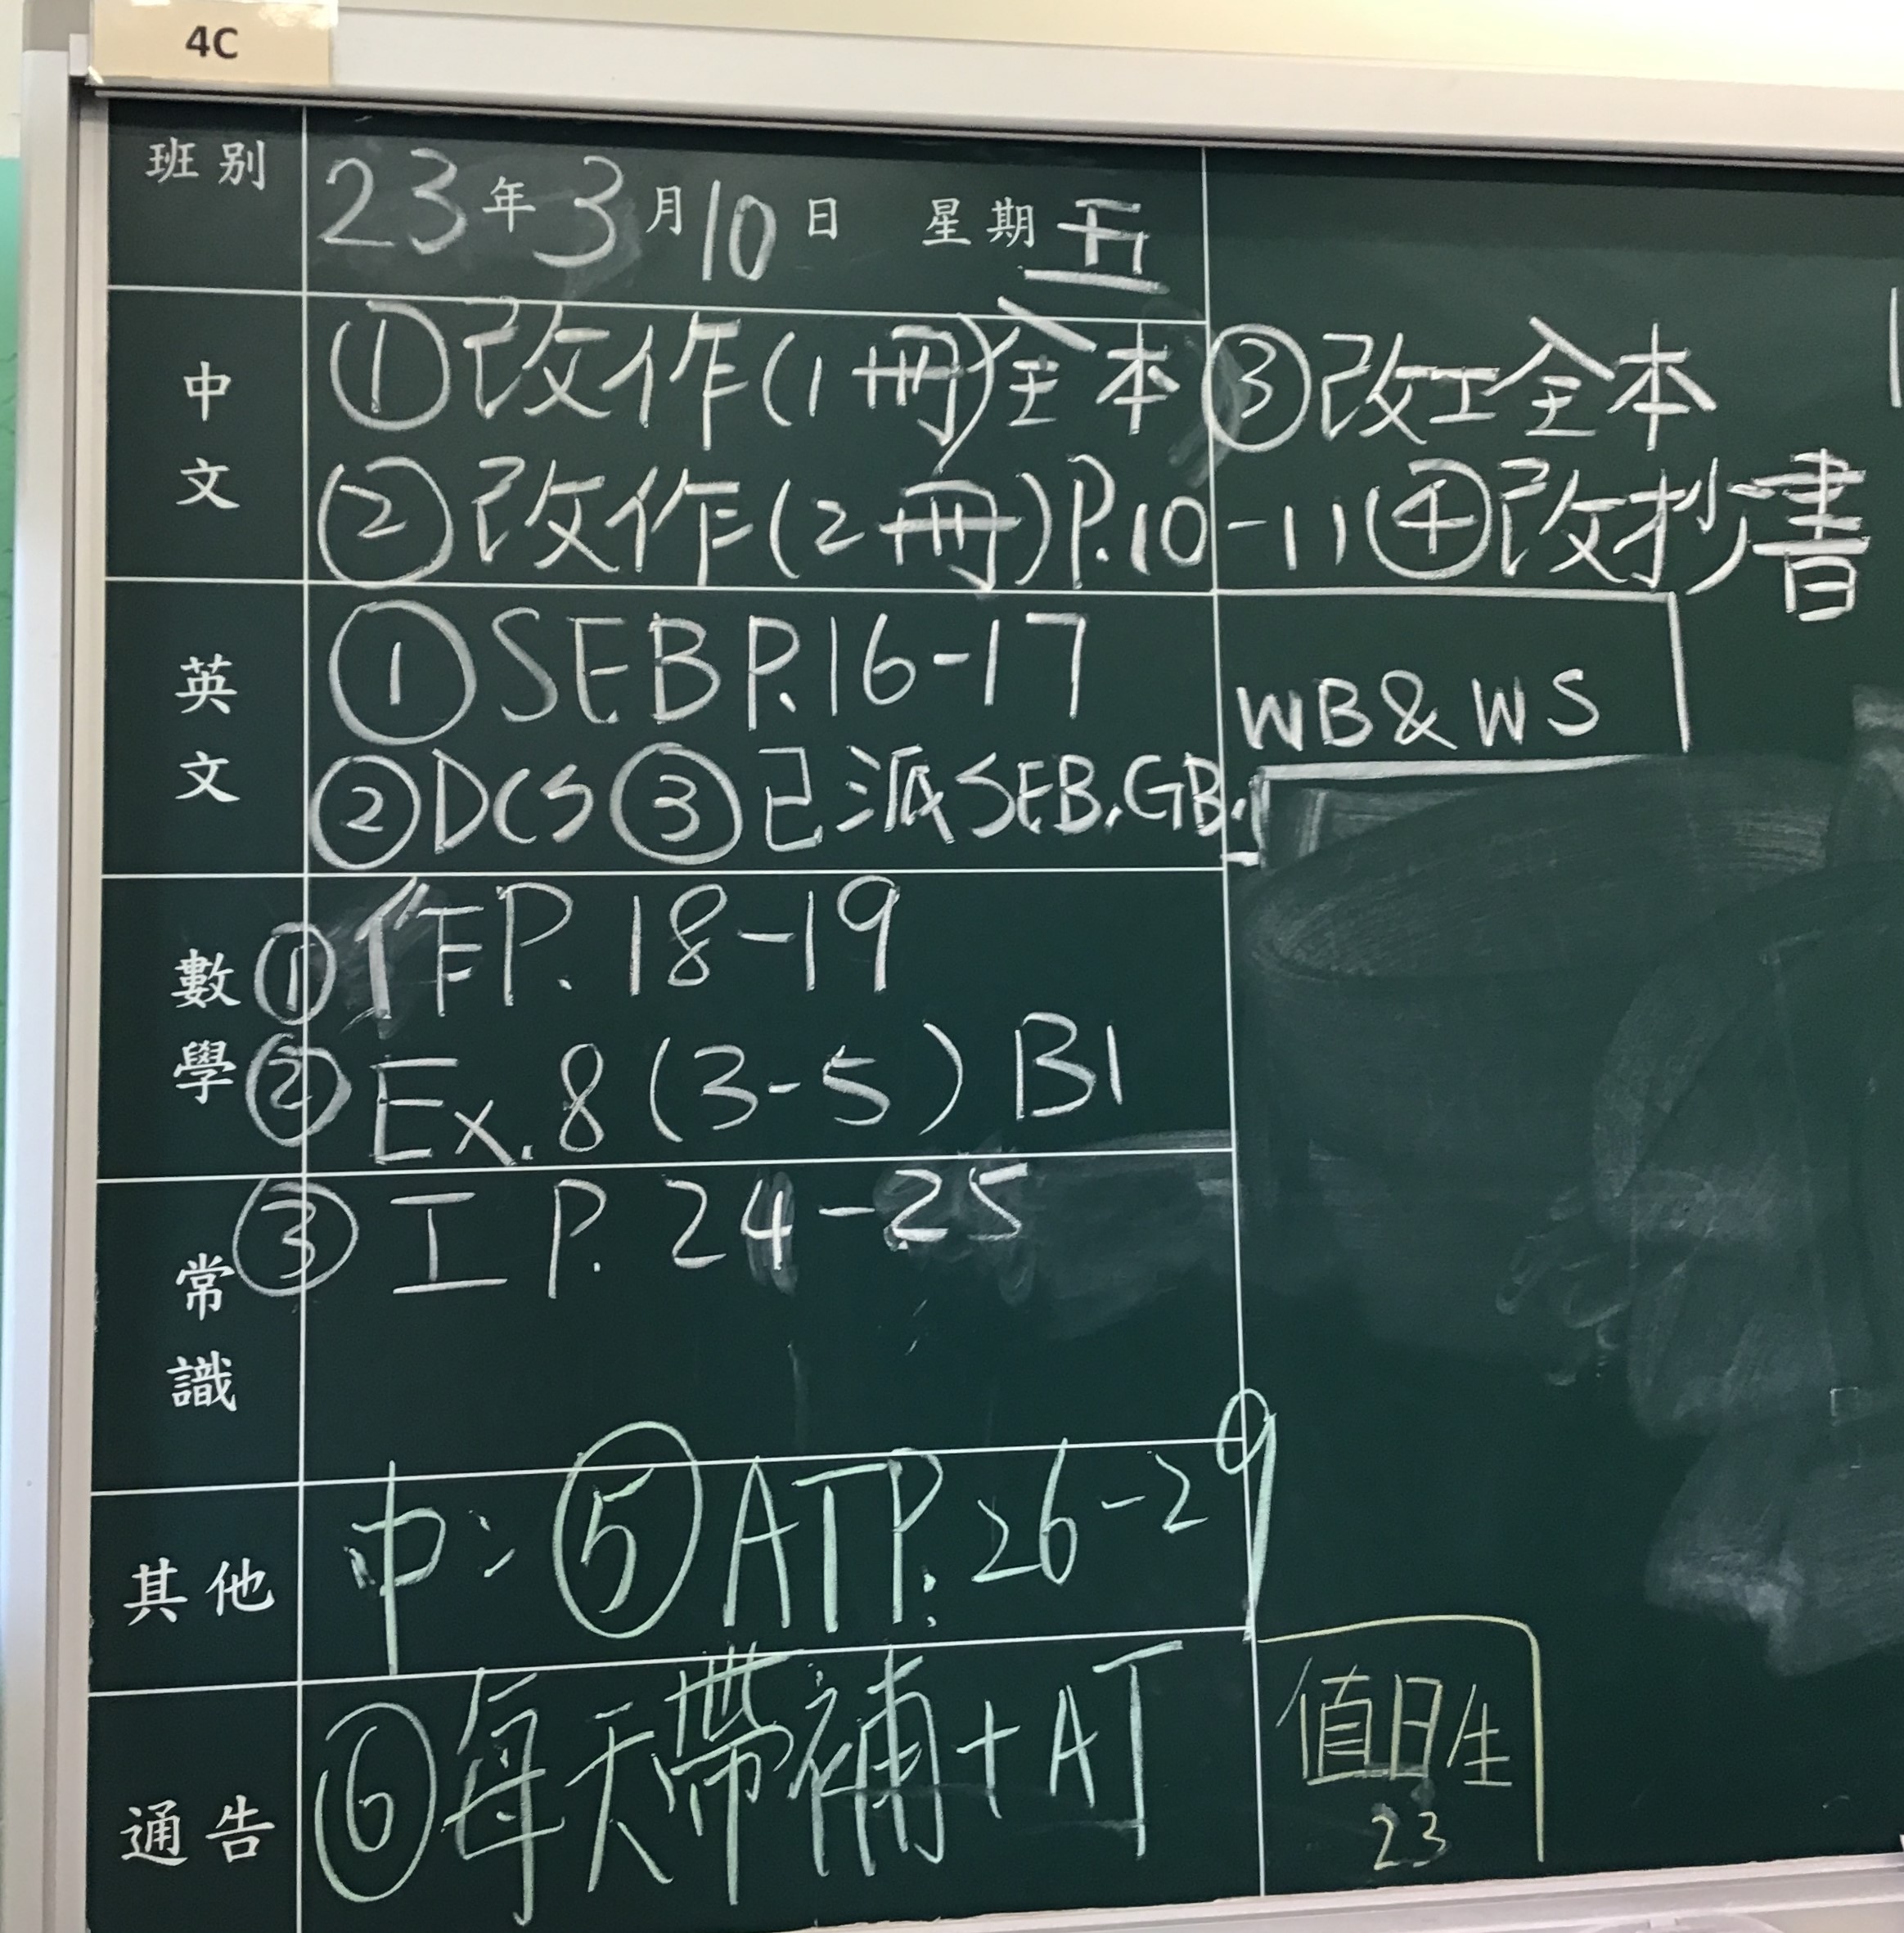 4C
班別 23年3月10日 星期五
中文 ①改作(1冊)全本 ③改工全本
②改作(2冊)P.10-11 ④改抄書
英文 ①SEB P.16-17
②DCS ③已派SEB,GB, WB & WS
數學 ①作P.18-19
②Ex.8(3-5) B1
常識 ③工 P.24-25
其他 中:⑤ATP.26-29
通告 ⑥每天帶補+AT
值日生
23